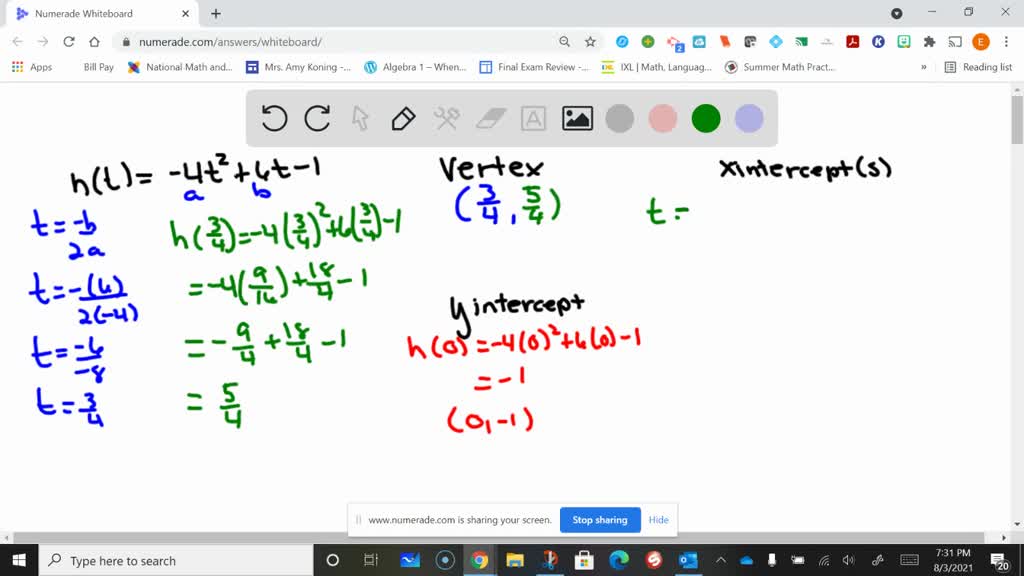 Numerade Whiteboard
numerade.com/answers/whiteboard/
Apps Bill Pay National Math and... Mrs. Amy Koning -... Algebra 1 – When... Final Exam Review -... IXL | Math, Languag... Summer Math Pract... » Reading list
h(t) = -4t² + 6t - 1
a b
t = -b/2a
t = -(6)/2(-4)
t = -6/-8
t = 3/4
h(3/4) = -4(3/4)² + 6(3/4) - 1
= -4(9/16) + 18/4 - 1
= -9/4 + 18/4 - 1
= 5/4
Vertex
(3/4, 5/4)
y intercept
h(0) = -4(0)² + 6(0) - 1
= -1
(0, -1)
x intercept(s)
t =
www.numerade.com is sharing your screen. Stop sharing Hide
Type here to search
7:31 PM
8/3/2021
20